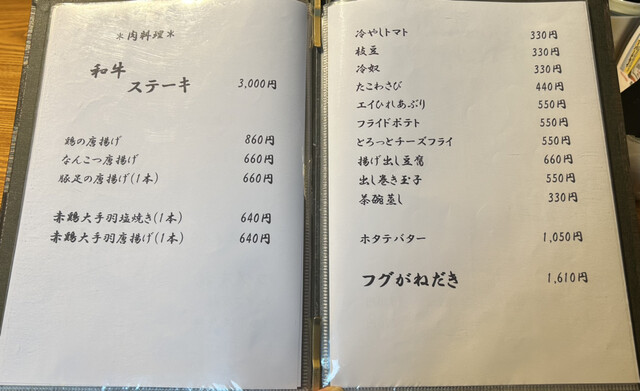 *肉料理*
和牛
ステーキ 3,000円
鶏の唐揚げ 860円
なんこつ唐揚げ 660円
豚足の唐揚げ(1本) 660円
赤鶏大手羽塩焼き(1本) 640円
赤鶏大手羽唐揚げ(1本) 640円
冷やしトマト 330円
枝豆 330円
冷奴 330円
たこわさび 440円
エイひれあぶり 550円
フライドポテト 550円
とろっとチーズフライ 550円
揚げ出し豆腐 660円
出し巻き玉子 550円
茶碗蒸し 330円
ホタテバター 1,050円
フグがねだき 1,610円